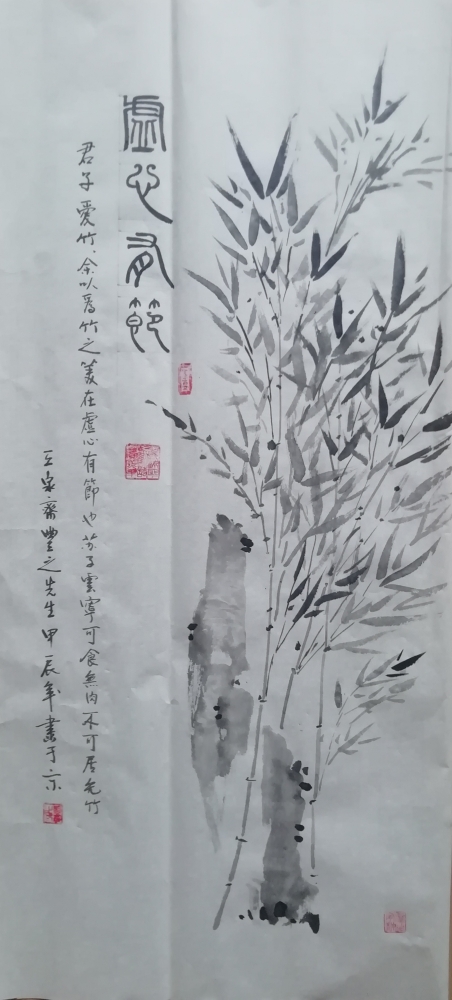 虛心有節
君子愛竹、余以為竹之美在虛心有節也苏子雲寧可食無肉不可居无竹
玉泉齋豐之先生甲辰年畫于京